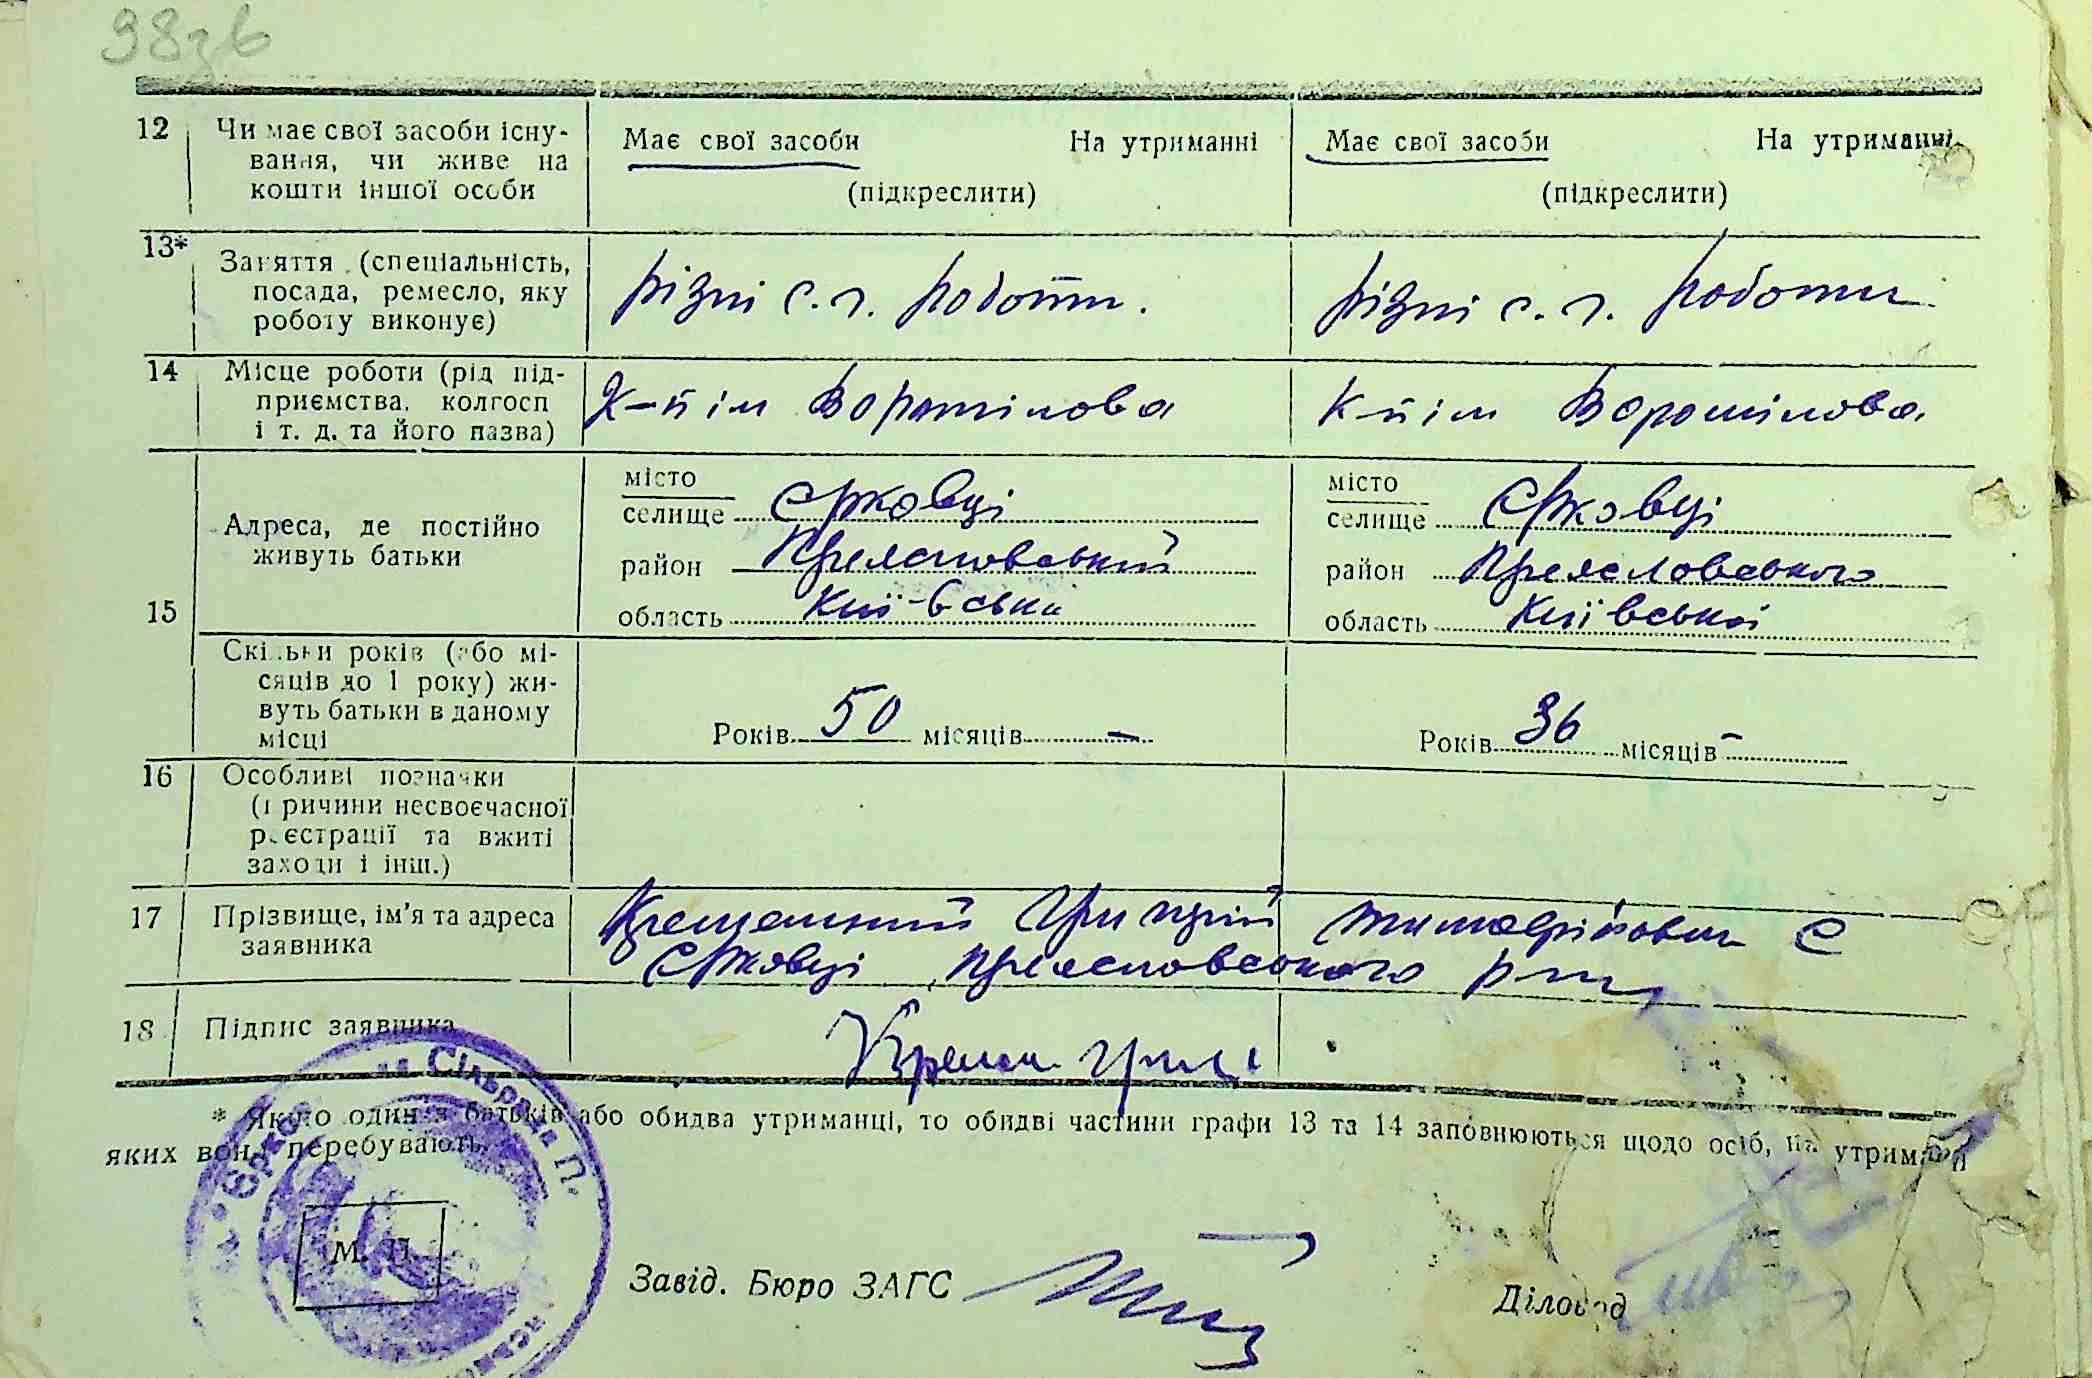 98зв
12 Чи має свої засоби існування, чи живе на кошти іншої особи
Має свої засоби На утриманні
(підкреслити)
Має свої засоби На утриманні
(підкреслити)
13* Заняття (спеціальність, посада, ремесло, яку роботу виконує)
різні с. г. роботи.
різні с. г. роботи
14 Місце роботи (рід підприємства, колгосп і т. д. та його назва)
К-п ім Ворошилова
К-п ім Ворошілова
15 Адреса, де постійно живуть батьки
місто
селище Єрковці
район
область Київська
місто
селище Єрковці
район Преясловського
область Київської
Скільки років (або місяців до 1 року) живуть батьки в даному місці
Років 50 місяців —
Років 36 місяців –
16 Особливі позначки (причини несвоєчасної реєстрації та вжиті заходи і інш.)
17 Прізвище, ім'я та адреса заявника
Грицій С
Єрковці, Преясловського р-ну
18 Підпис заявника
* Якщо один із батьків або обидва утриманці, то обидві частини графи 13 та 14 заповнюються щодо осіб, на утриманні
яких вони перебувають.
Сільрада П.
М. П.
Завід. Бюро ЗАГС
Діловод